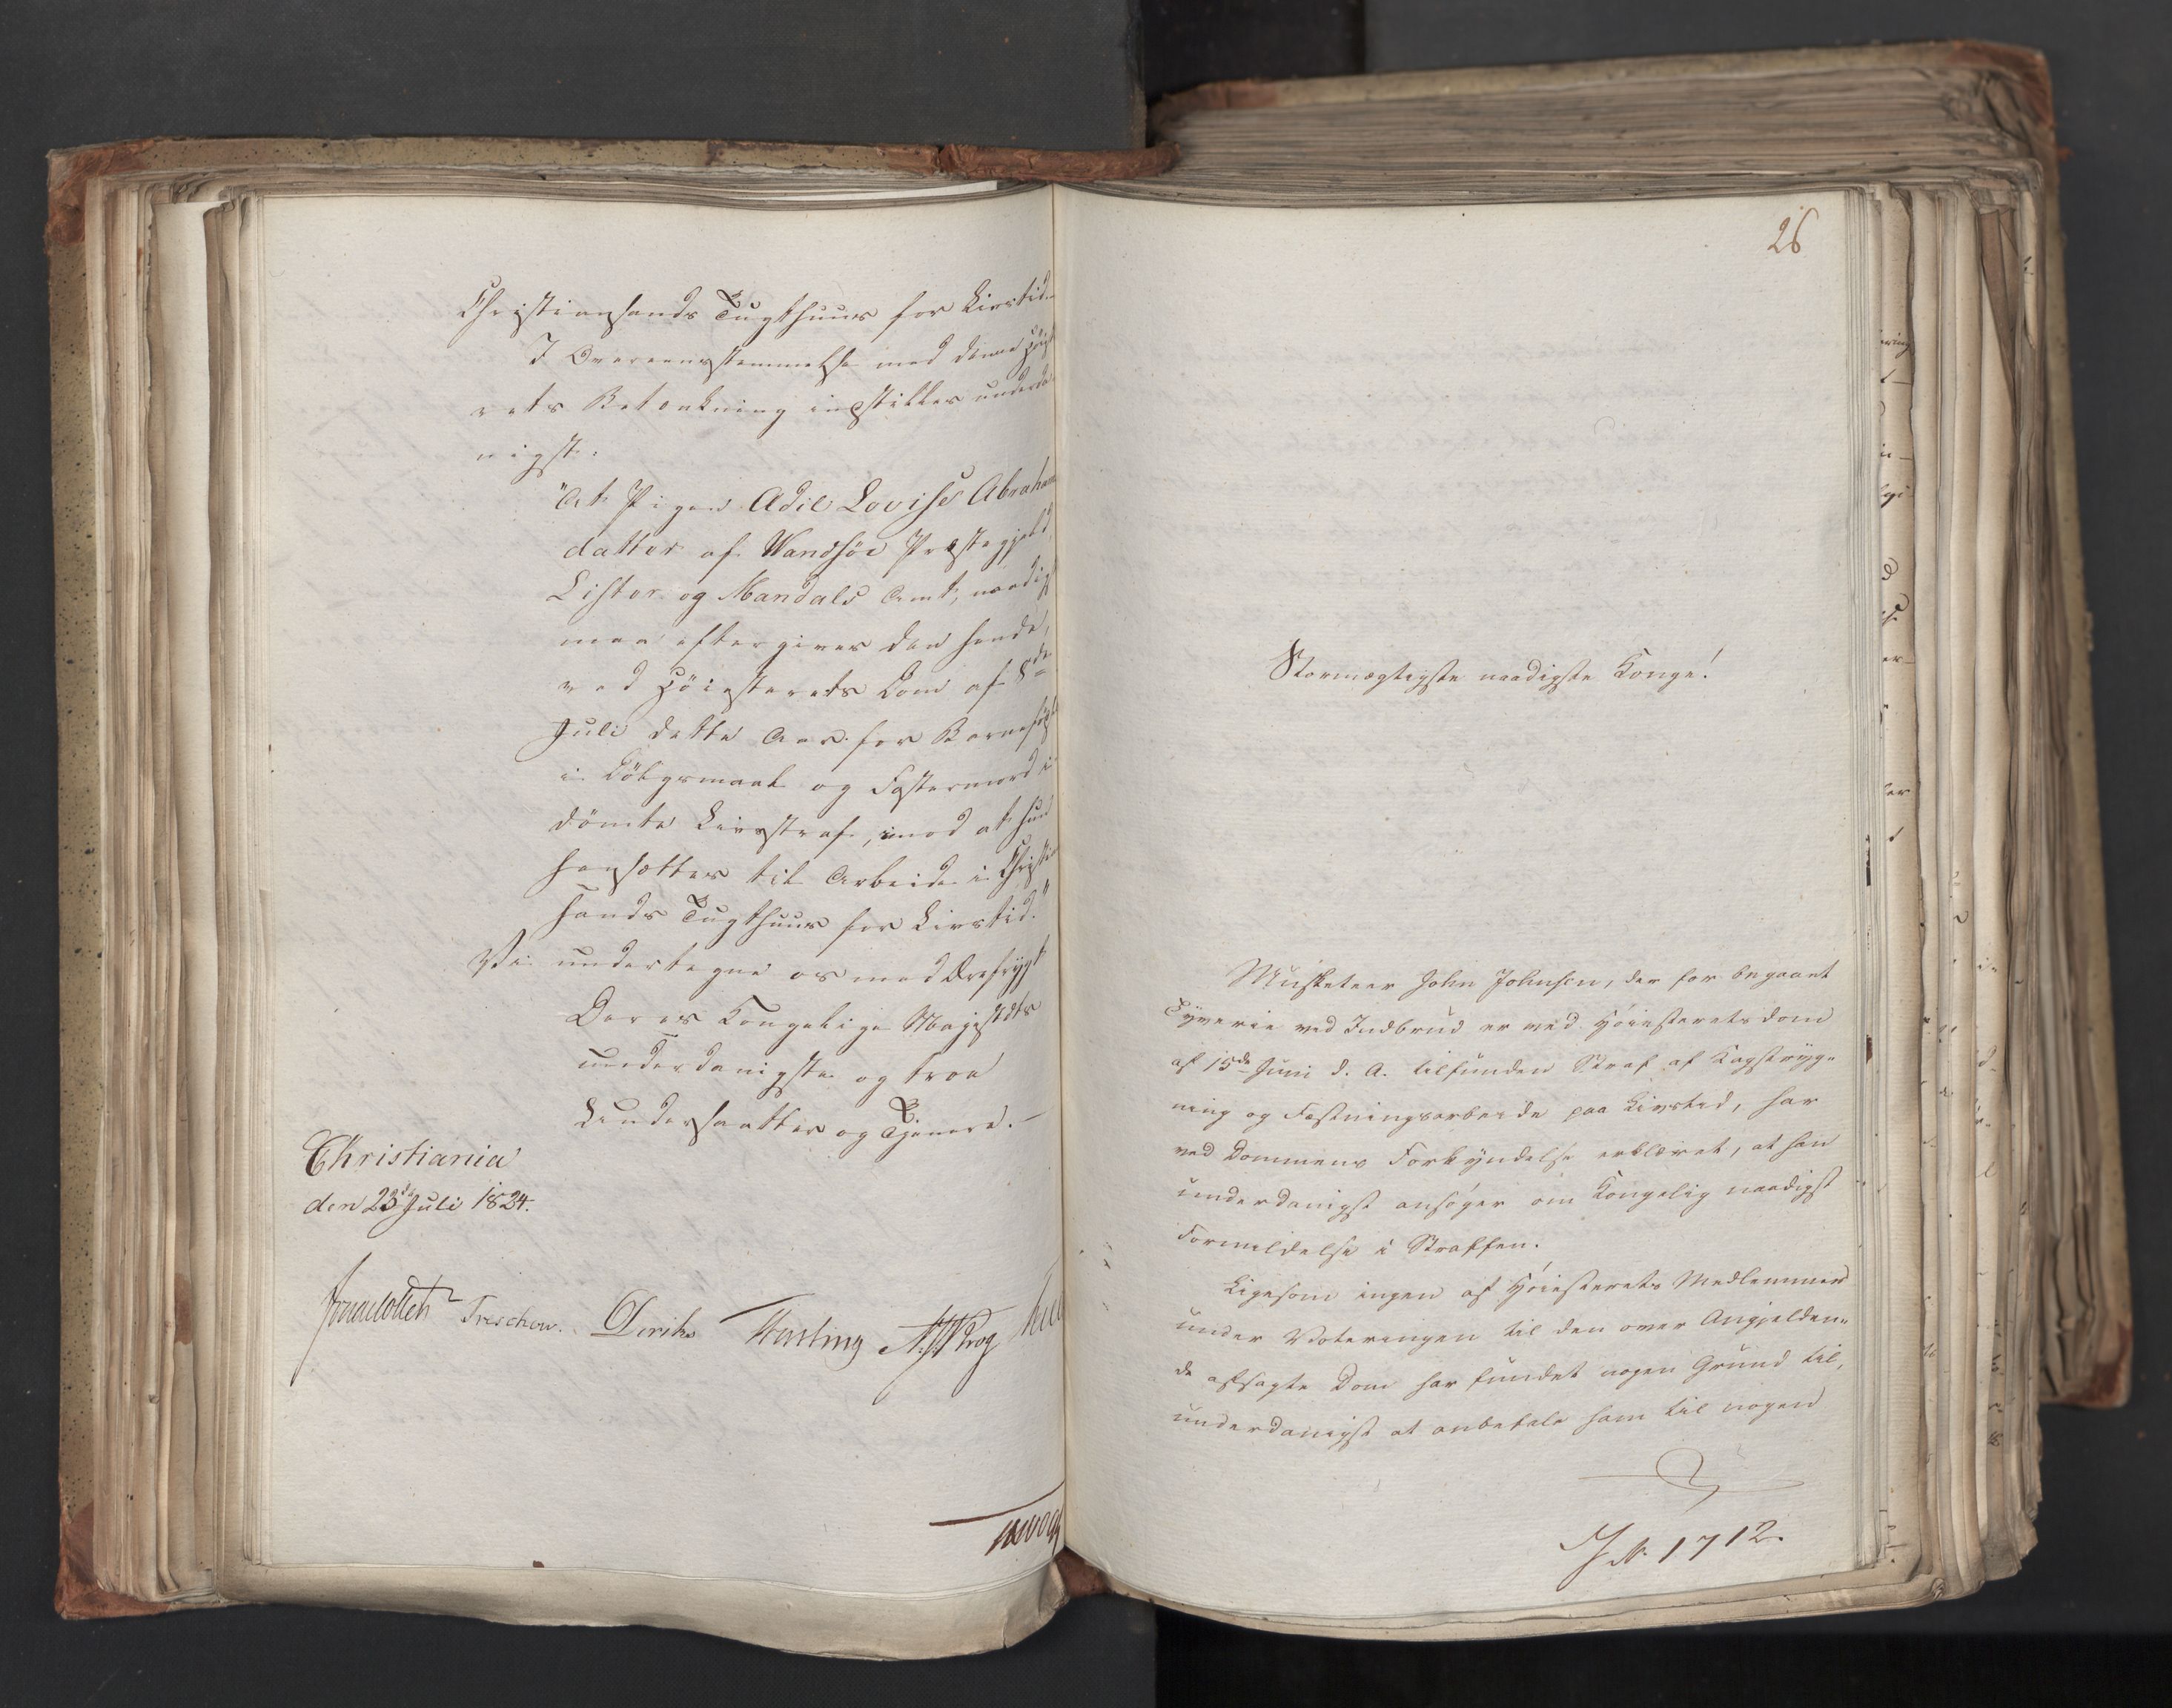 Christiansands Tugthuus for Livstid.
I Overeensstemmelse med denne Høieste
rets Betænkning indstilles underda
nigst:
"At Pigen Adil Lovise Abrahams
datter af Wandsøe Præstegjeld,
Lister og Mandals Amt, naadigst
maa eftergives den hende,
ved Høiesterets Dom af 8de
Juli dette Aar for Barnefødsel
i Dølgsmaal og Fostermord i
dømte Livsstraf, imod at hun
hensættes til Arbeide i Christian
sands Tugthuus for Livstid."
Vi undertegne os med Ærefrygt
Deres Kongelige Majestæts
underdanigste og troe
Undersaatter og Tjenere.-
Christiania
den 23de Juli 1824.
Jonas Collett Treschow. Diriks Hasting Krog
26
Stormægtigste naadigste Konge!
Musketeer John Johnsen, der for begaaet
Tyverie ved Indbrud er ved Høiesteretsdom
af 15de Juni d. A. tilfunden Straf af Kagstryg-
ning og Fæstningsarbeide paa Livstid, har
ved Dommens Forkyndelse erklæret, at han
underdanigst ansøger om Kongelig naadigst
Formildelse i Straffen.
Ligesom ingen af Høiesterets Medlemmer
under Voteringen til den over Angjelden-
de afsagte Dom har fundet nogen Grund til,
underdanigst at anbefale ham til nogen
JN. 1712.